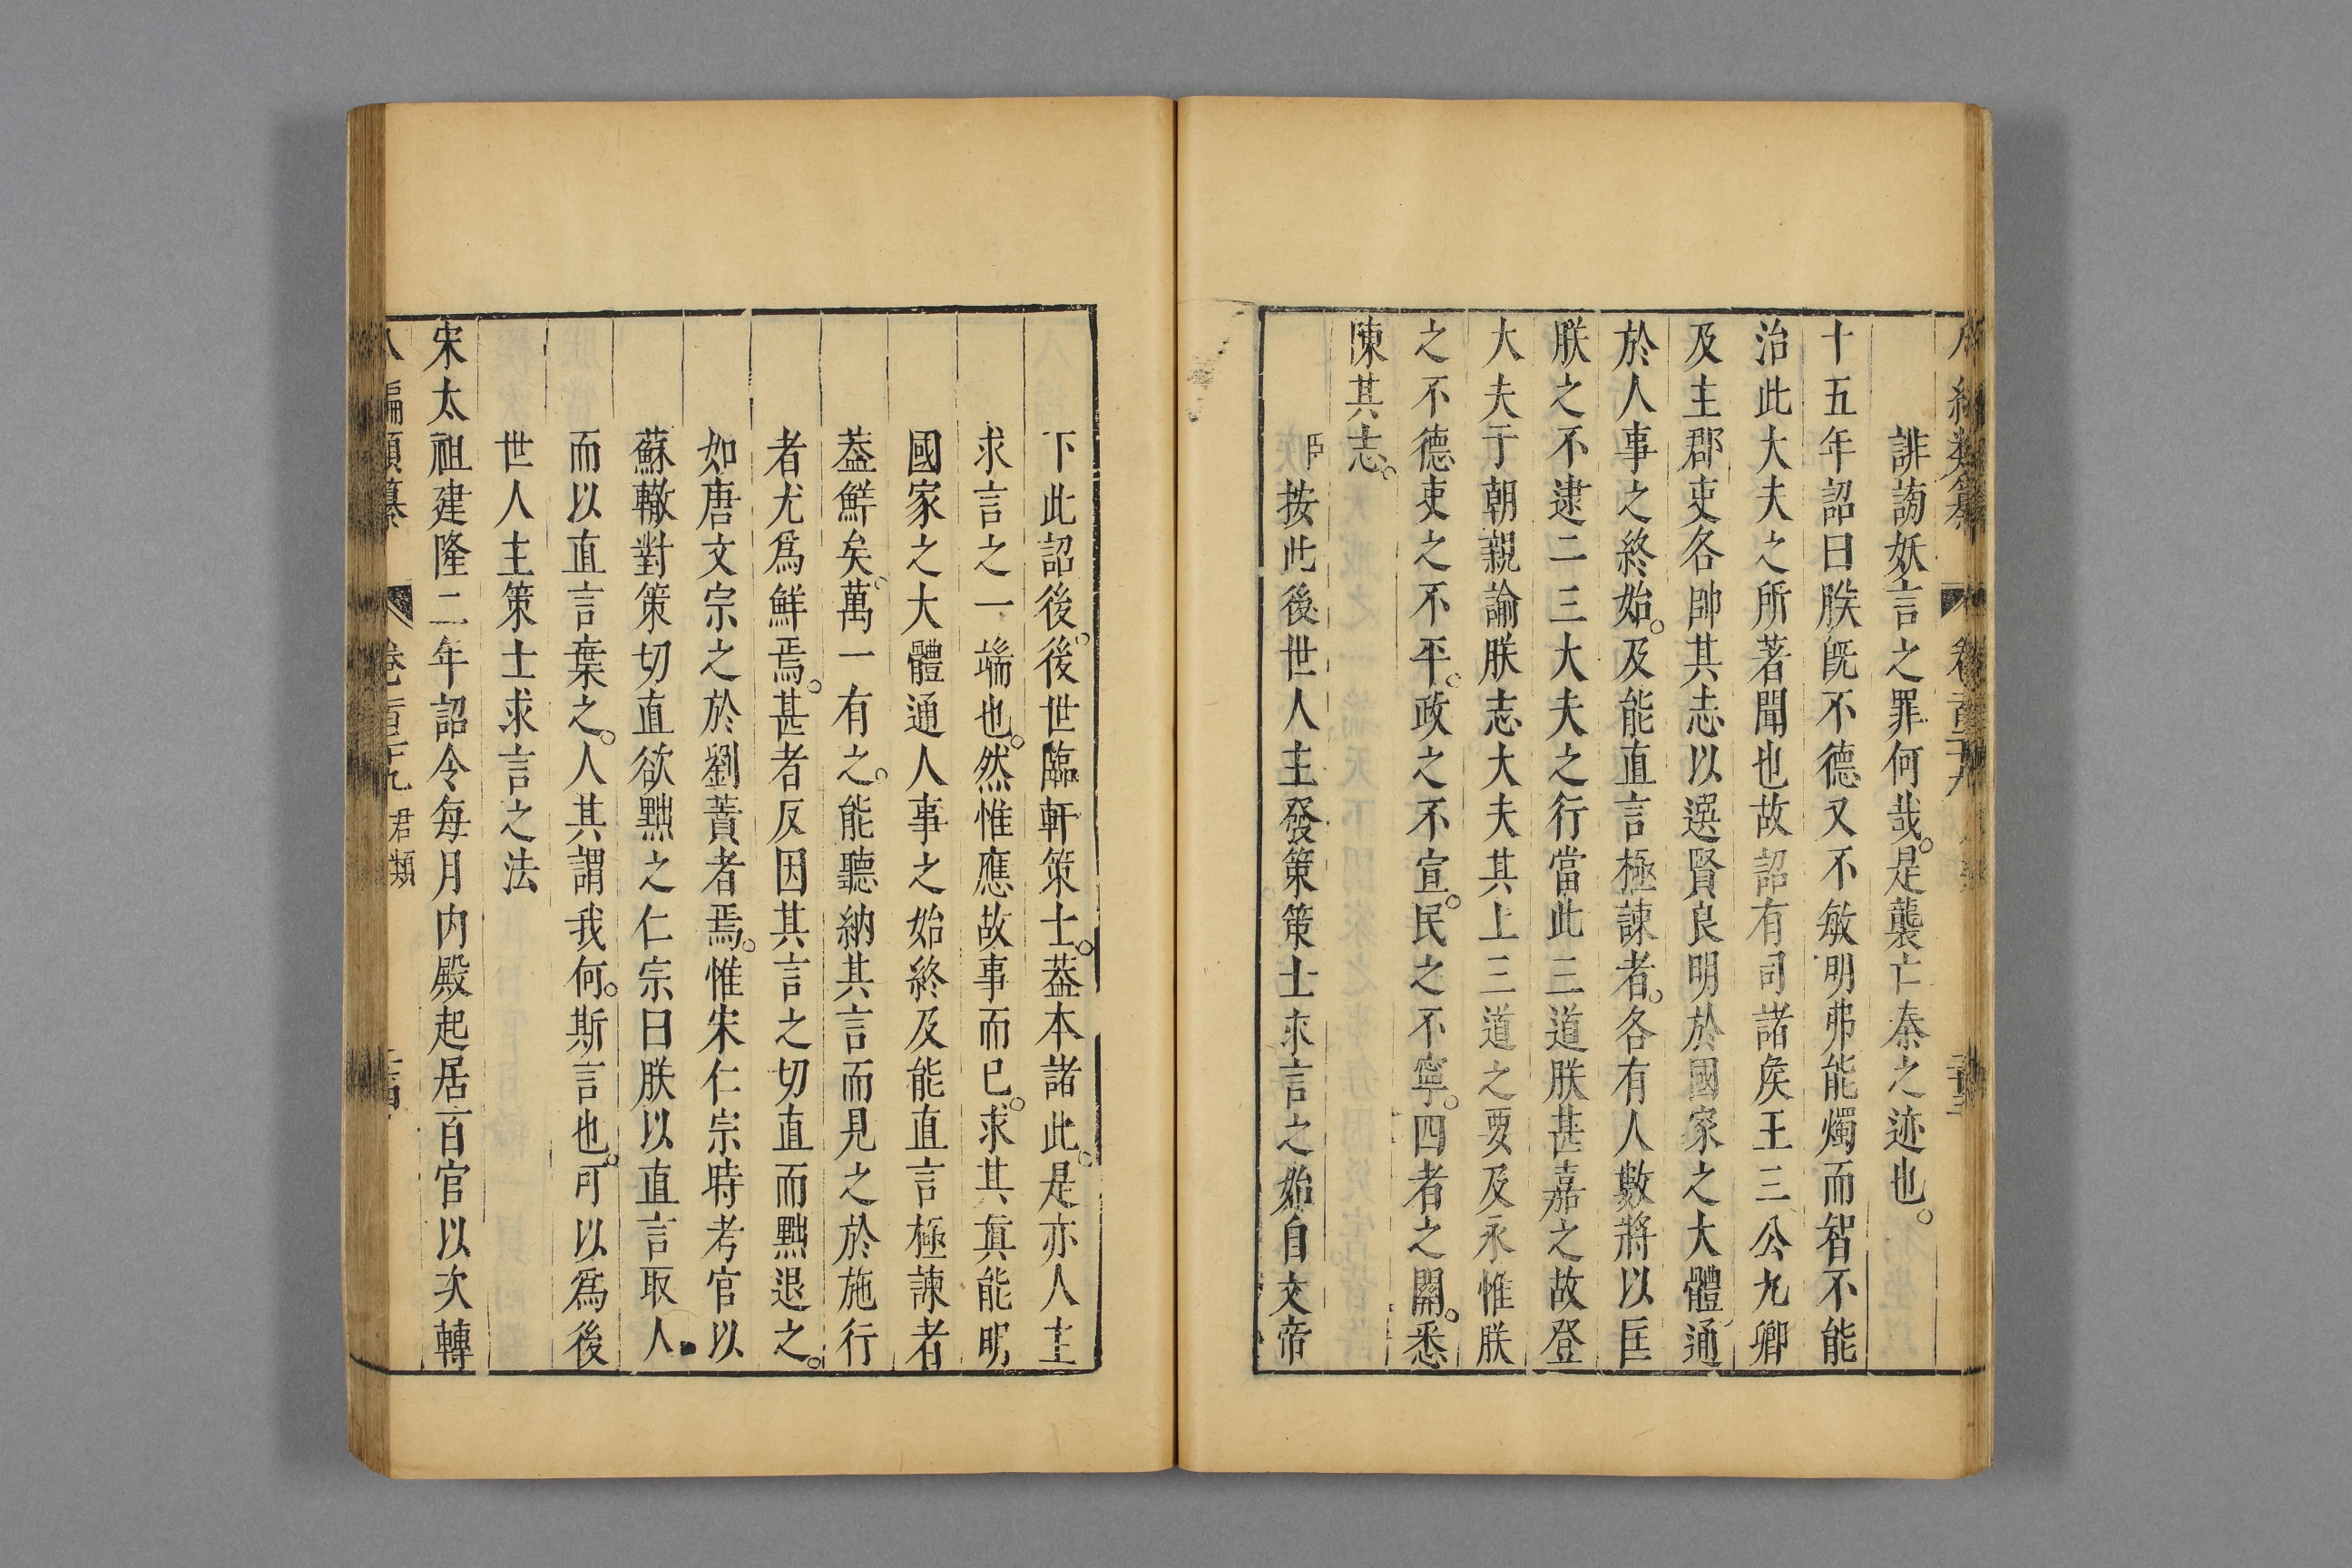 誹謗妖言之罪何哉是襲亡秦之迹也
十五年詔曰朕旣不德又不敏明弗能燭而智不能
治此大夫之所著聞也故詔有司諸矦王三公九卿
及主郡吏各帥其志以選賢良明於國家之大體通
於人事之終始及能直言極諫者各有人數將以匡
朕之不逮二三大夫之行當此三道朕甚嘉之故登
大夫于朝親諭朕志大夫其上三道之要及永惟朕
之不德吏之不平政之不宣民之不寧四者之闕悉
陳其志
臣按此後世人主發策策士求言之始自文帝
下此詔後後世臨軒策士葢本諸此是亦人主
求言之一端也然惟應故事而已求其眞能明
國家之大體通人事之始終及能直言極諫者
葢鮮矣萬一有之能聽納其言而見之於施行
者尤爲鮮焉甚者反因其言之切直而黜退之
如唐文宗之於劉蕡者焉惟宋仁宗時考官以
蘇轍對策切直欲黜之仁宗曰朕以直言取人
而以直言棄之人其謂我何斯言也可以爲後
世人主策士求言之法
宋太祖建隆二年詔令每月内殿起居百官以次轉
八編類纂 卷二百二十九 君類